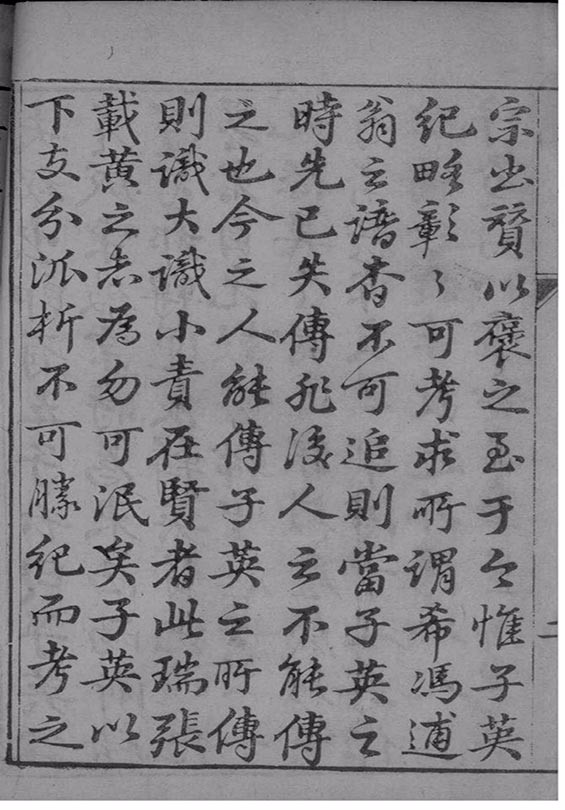 宗出贊以褒之至于今惟子英
紀略彰〻可考求所謂希馮逋
翁之譜杳不可追則當子英之
時先已失傳非後人之不能傳
之也今之人能傳子英之所傳
則識大識小責在賢者此瑞張
載黄之志為勿可泯矣子英以
下支分派析不可勝紀而考之
二